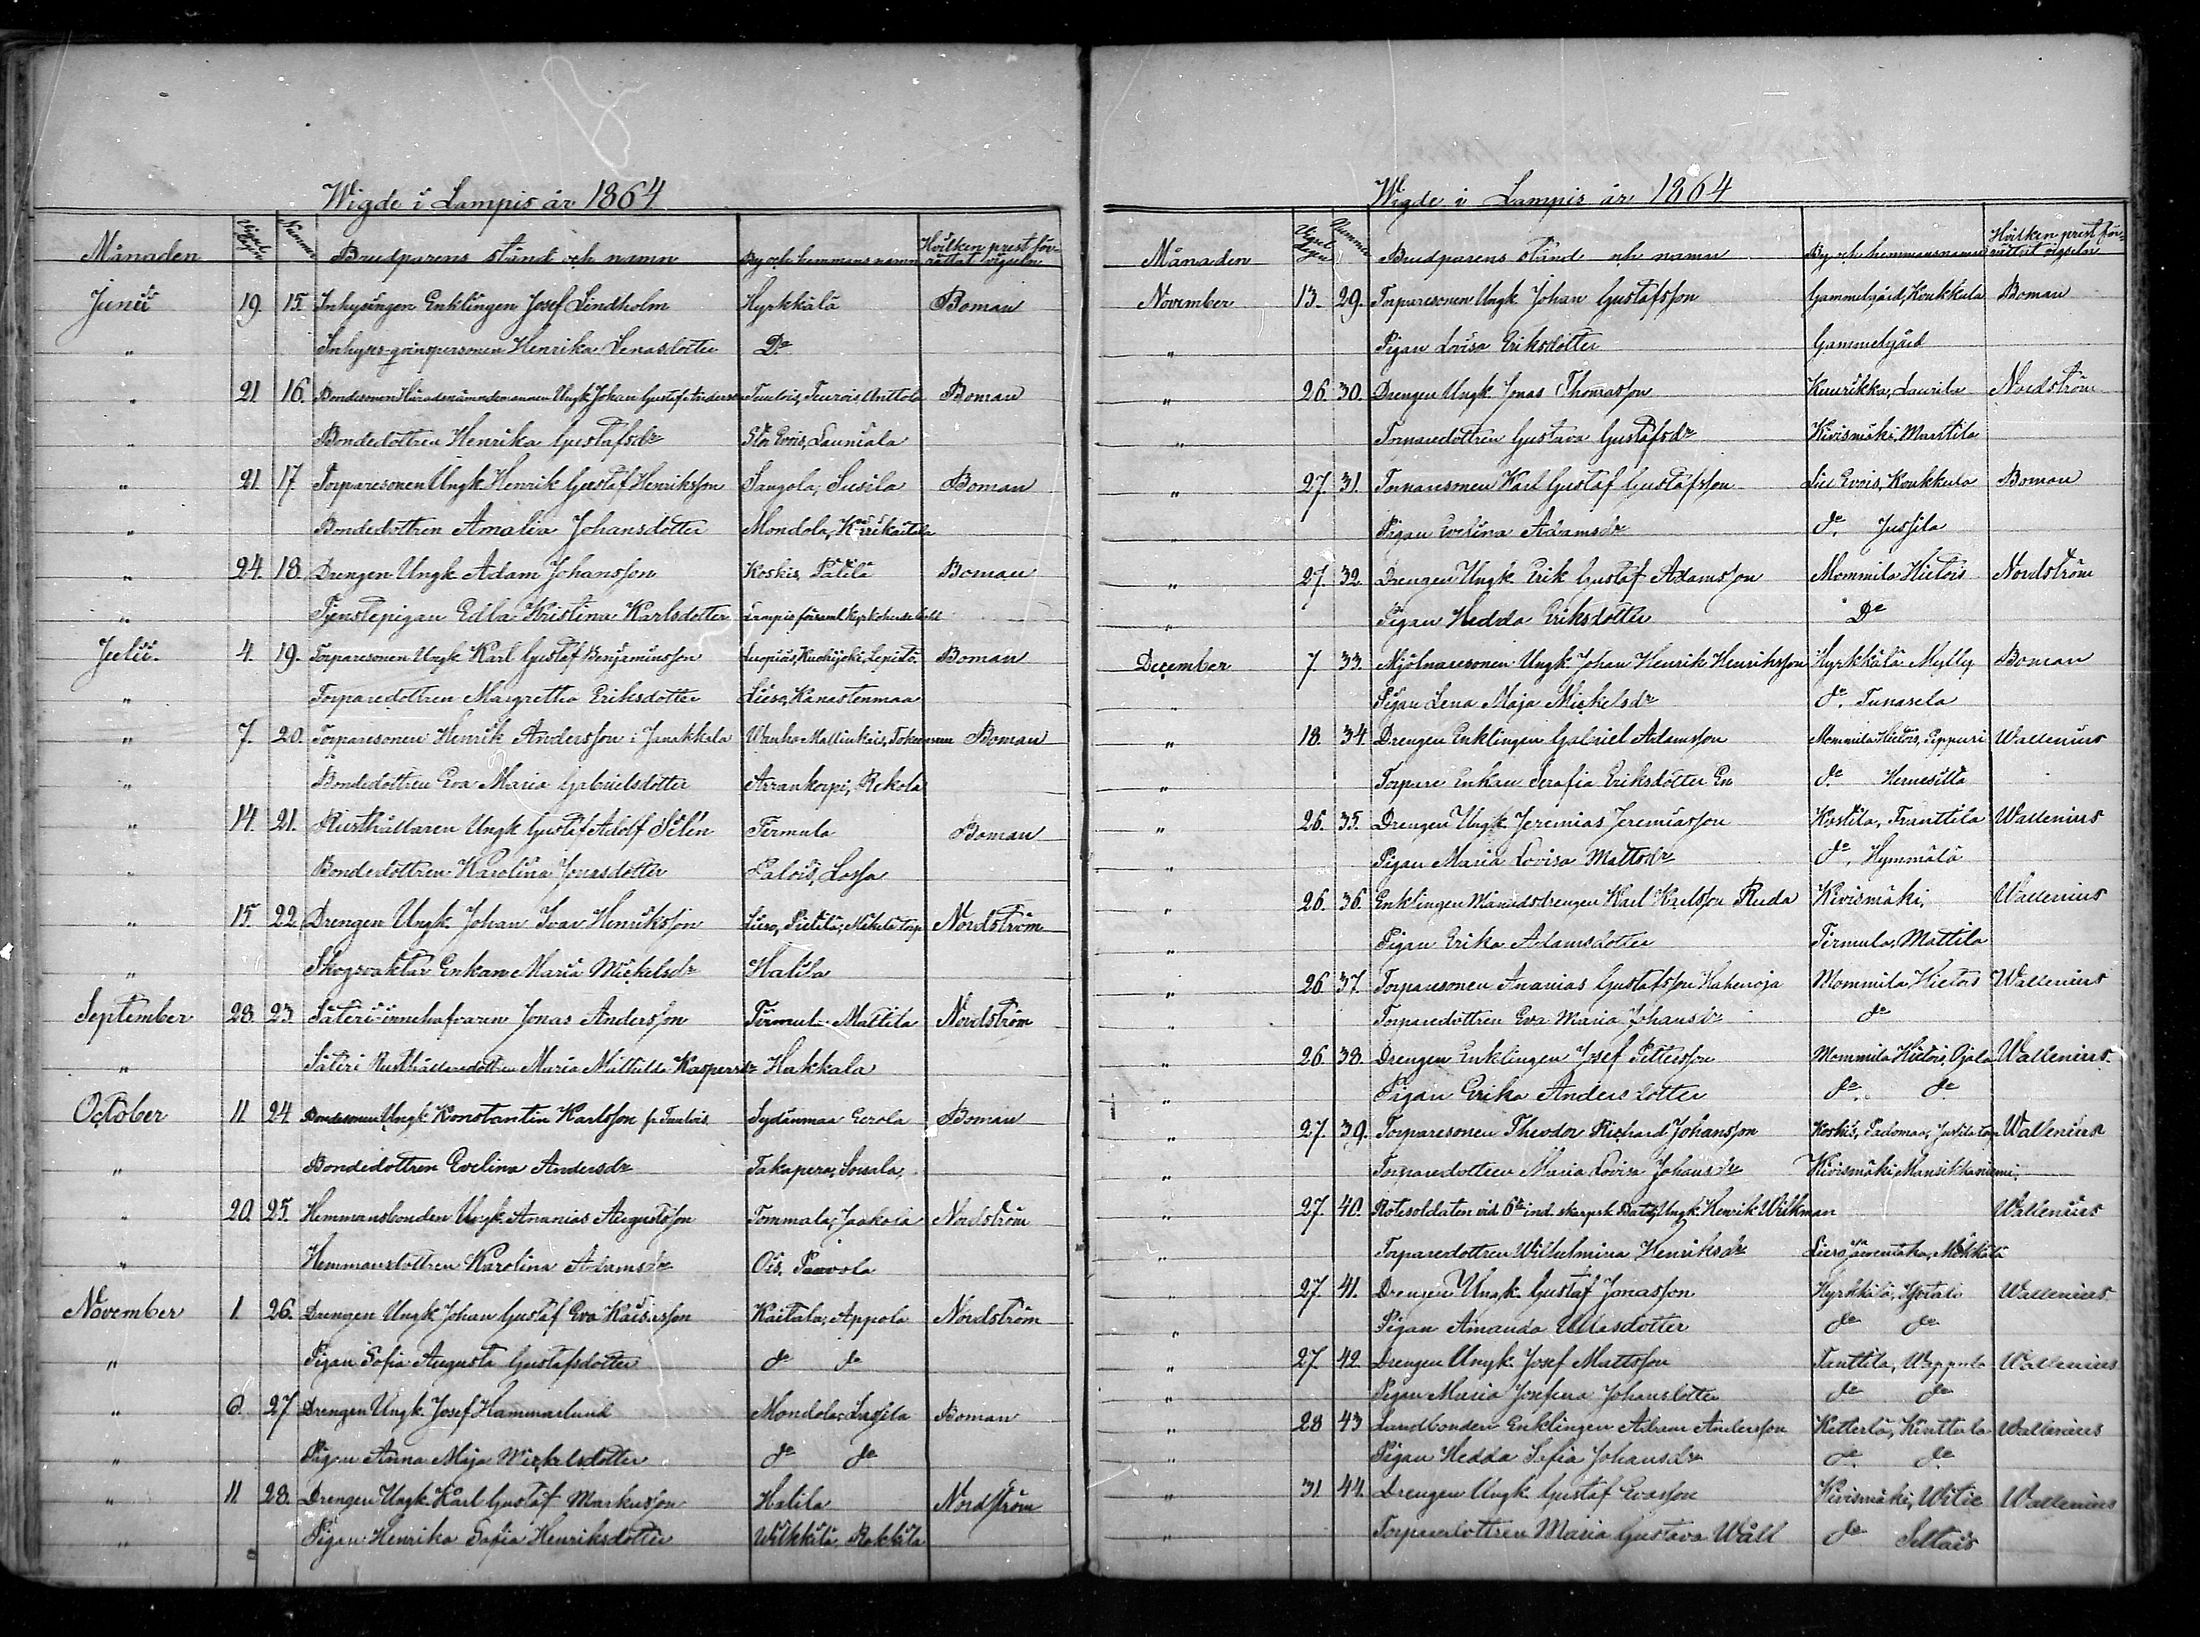 Wigde i Lampis år 1864
Månaden Vigsel dagen Nummer Brudparens stånd och namn By och hemmans namn Hvilken prest förrättat vigseln
Junii 19. 15. Inhysingen Enklingen Josef Lindholm Hyrkkälä Boman
" Inhyses qvinspersonen Henrika Lenasdotter Do
" 21 16. Bondesonen Ungk Johan Gustaf Boman
" Bondedottren Henrika Gustafsdr Stor Evois, Launiala
" 21. 17 Torparesonen Ungk. Henrik Gustaf Henriksson Sangola, Susila Boman
" Bondedottren Amalia Johansdotter Mondola,
" 24. 18. Drengen Ungk. Adam Johansson Koskis, Pätilä Boman
" Tjenstepigan Edla Kristina Karlsdotter Lampis
Julii. 4. 19. Torparesonen Ungk Karl Gustaf Benjaminsson Boman
" Torparedottren Margretha Eriksdotter Lieso, Kanastenmaa
" 7. 20. Torparesonen Henrik Andersson i Janakkala Boman
" Bondedottren Eva Maria Gabrielsdotter Arrankorpi, Rekola
" 14. 21. Rusthållaren Ungk Gustaf Adolf Silén Termula Boman
" Bondedottren Karolina Jonasdotter Palois, Lossa
" 15. 22. Drengen Ungk. Johan Ivar Henriksson Lieso, Pietilä, torp Nordström
" Skogvaktar Enkan Maria Mickelsdr Halila
September 28. 23 Säteri innehafvaren Jonas Andersson Mattila Nordström
" Säteri Rusthållaredottren Maria Mathilda Kaspersdr Hakkala
October 11 24. Bondesonen Ungk Konstantin Karlsson fr Taulois Sydänmaa Eerola Boman
" Bondedottren Evelina Andersdr Takapera,
" 20. 25. Hemmansbonden Ungk. Ananias Augustsson Tommala, Jaakola Nordström
" Hemmansdottren Karolina Adamsdr Ois, Paavola
November 1. 26. Drengen Ungk Johan Gustaf Eva Kaisasson Kaitala, Appola Nordström
" Pigan Sofia Augusta Gustafsdotter do do
" 6. 27 Drengen Ungk. Josef Hammarlund Mondola, Boman
" Pigan Anna Maja Mickelsdotter do do
" 11 28. Drengen Ungk. Karl Gustaf Markusson Halila Nordström
" Pigan Henrika Sofia Henriksdotter Wilkkilä, Rokkila
Wigde i Lampis år 1864
Månaden Vigsel dagen Nummer Brudparens stånd och namn By och hemmansnamn Hvilken prest förrättat vigseln
November 13. 29. Torparesonen Ungk. Johan Gustafsson Gammelgård, Koukkula Boman
" Pigan Lovisa Eriksdotter Gammelgård
" 26. 30. Drengen Ungk. Jonas Thomasson Kuurikka, Laurila Nordström
" Torparedottren Gustava Gustafsdr Kivismäki, Marttila
" 27. 31. Torparesonen Karl Gustaf Gustafsson Lill Evois, Koukkula Boman
" Pigan Evelina Adamsdr do, Jussila
" 27. 32. Drengen Ungk Erik Gustaf Adamsson Mommila Hietois Nordström
" Pigan Hedda Eriksdotter Do
December 7 33. Mjölnaresonen Ungk. Johan Henrik Henriksson Hyrkkälä Mylly Boman
" Pigan Lena Maja Mickelsdr do,
" 18. 34. Drengen Enklingen Gabriel Adamsson Mommila Hietois, Pippuri Wallenius
" Torpare Enkan Serafia Eriksdotter do Hernesilta
" 26. 35. Drengen Ungk. Jeremias Jeremiasson Wallenius
" Pigan Maria Lovisa Mattsdr do,
" 26. 36. Enklingen Månadsdrengen Karl Karlsson Ruda Kivismäki, Wallenius
" Pigan Erika Adamsdotter Termula, Mattila
" 26 37. Torparesonen Ananias Gustafsson Kahenoja Mommila Hietois Wallenius
" Torparedottren Eva Maria Johansdr do
" 26 38. Drengen Enklingen Josef Pettersson Mommila Hietois, Ojala Wallenius
" Pigan Erika Andersdotter do do
" 27. 39. Torparesonen Theodor Richard Johansson Koskis, Padomaa, Wallenius
" Torparedottren Maria Lovisa Johansdr Kivismäki Mansikkaniemi
" 27. 40. Rotesoldaten vid 6te ind. skarpsk. Batt. Ungk. Henrik Wikman Wallenius
" Torparedottren Wilhelmina Henriksdr
" 27. 41. Drengen Ungk. Gustaf Jonasson Hyrkkälä, Wallenius
" Pigan Amanda Ullasdotter do do
" 27. 42. Drengen Ungk. Josef Mattsson Tanttila, Wallenius
" Pigan Maria Josefina Johansdotter do do
" 28 43 Landbonden Enklingen Adam Andersson Ketterla, Wallenius
" Pigan Hedda Sofia Johansdr do do
" 31 44. Drengen Ungk. Gustaf Evasson Kivismäki, Wallenius
" Torparedottren Maria Gustava Wall do